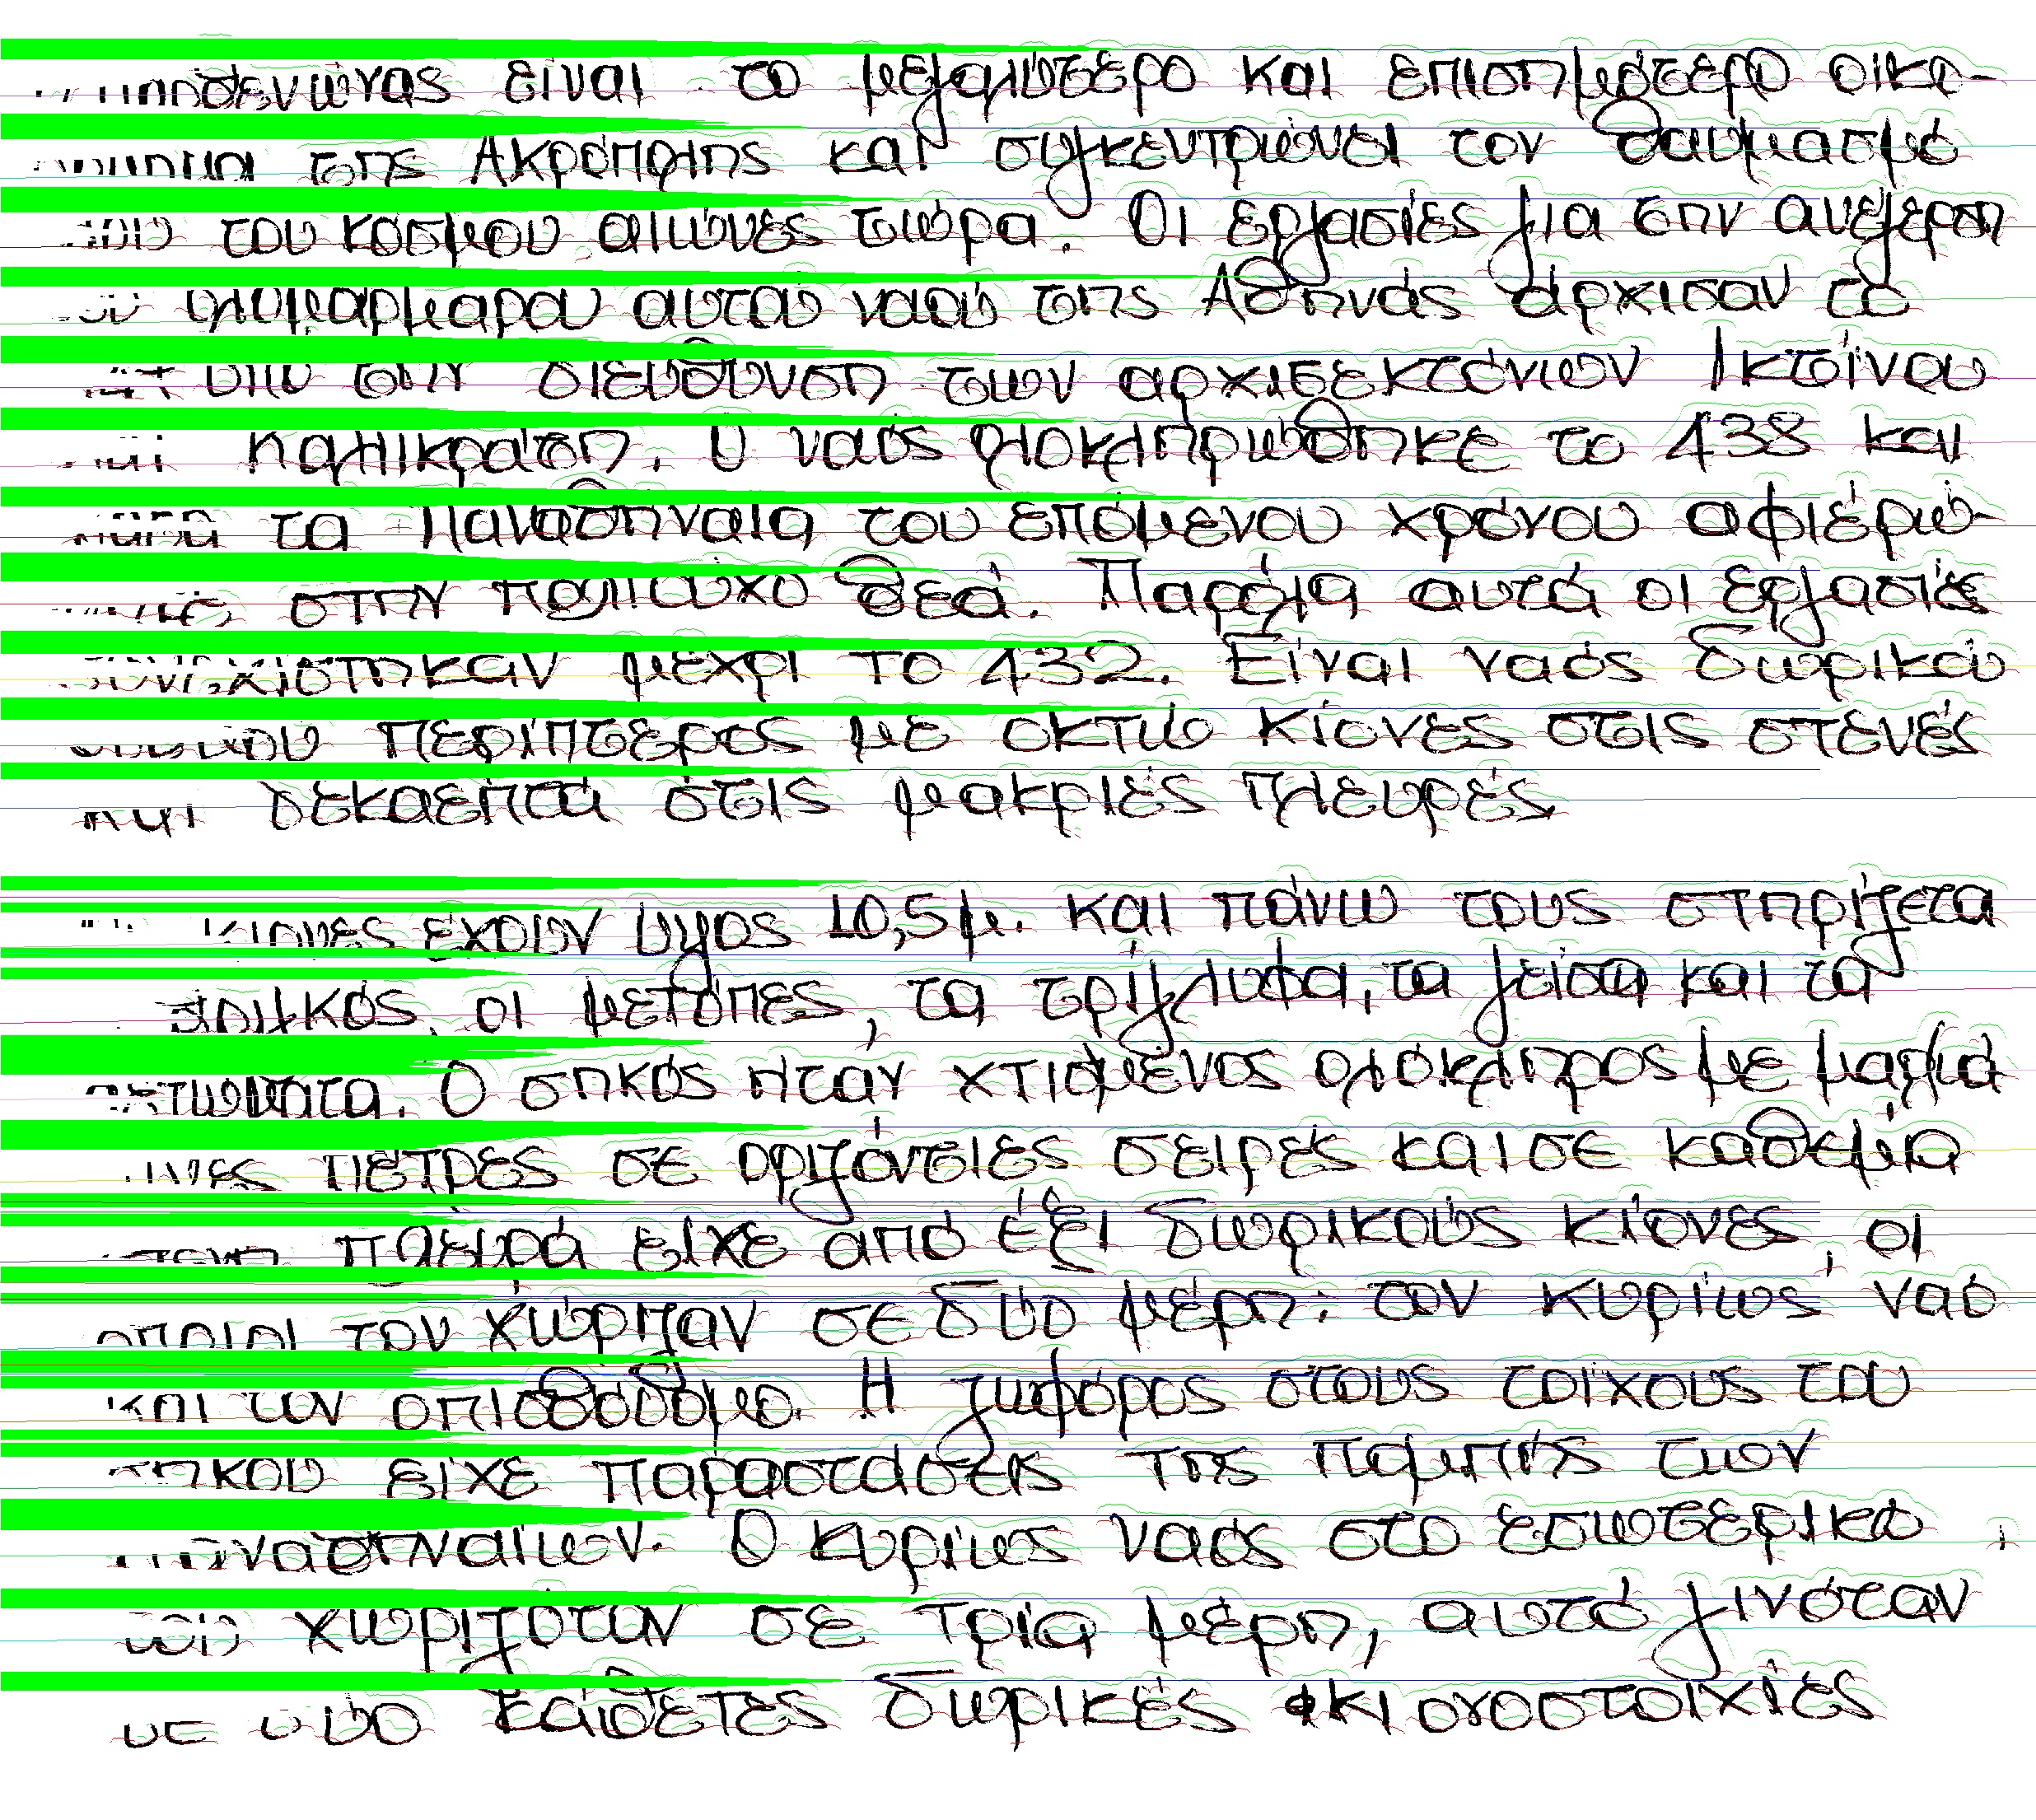 είναι το μεγαλύτερο και επισημότερο οικο-
της Ακρόπολης και συγκεντρώνει τον θαυμασμό
του κόσμου αιώνες τώρα. Οι εργασίες για την ανέγερση
ολομάρμαρου αυτού ναού της Αθηνάς άρχισαν το
την διεύθυνση των αρχιτεκτόνων Ικτίνου
Καλλικράτη. Ο ναός ολοκληρώθηκε το 438 και
τα Παναθήναια του επόμενου χρόνου αφιερώ-
στην πολιούχο θεά. Παρόλα αυτά οι εργασίες
συνεχίστηκαν μέχρι το 432. Είναι ναός δωρικού
περίπτερος με οκτώ κίονες στις στενές
δεκαεπτά στις μακριές πλευρές.
κίονες έχουν ύψος 10,5μ. και πάνω τους στηρίζεται
οι μετόπες, τα τρίγλυφα, τα γείσα και τα
Ο σηκός ήταν χτισμένος ολόκληρος με μαρμά
πέτρες σε οριζόντιες σειρές και σε καθεμία
πλευρά είχε από έξι δωρικούς κίονες, οι
οποίοι τον χώριζαν σε δύο μέρη: τον κυρίως ναό
και τον οπισθόδομο. Η ζωφόρος στους τοίχους του
σηκού είχε παραστάσεις της πομπής των
Παναθηναίων. Ο κυρίως ναός στο εσωτερικό
του χωριζόταν σε τρία μέρη, αυτό γινόταν
δύο κάθετες δωρικές κιονοστοιχίες